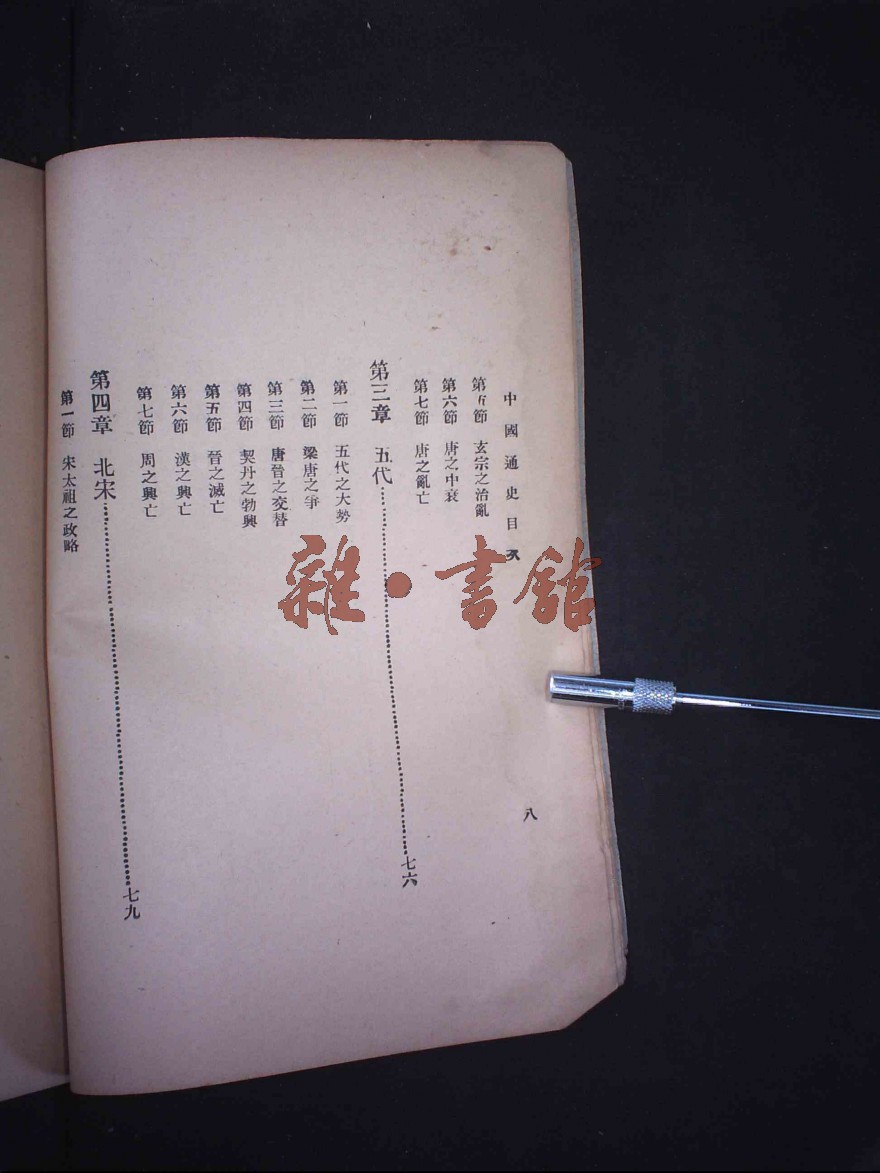 中國通史目次
八
第五節 玄宗之治亂
第六節 唐之中衰
第七節 唐之亂亡
第三章 五代……七六
第一節 五代之大勢
第二節 梁唐之爭
第三節 唐晉之交替
第四節 契丹之勃興
第五節 晉之滅亡
第六節 漢之興亡
第七節 周之興亡
第四章 北宋……七九
第一節 宋太祖之政略
雜·書館